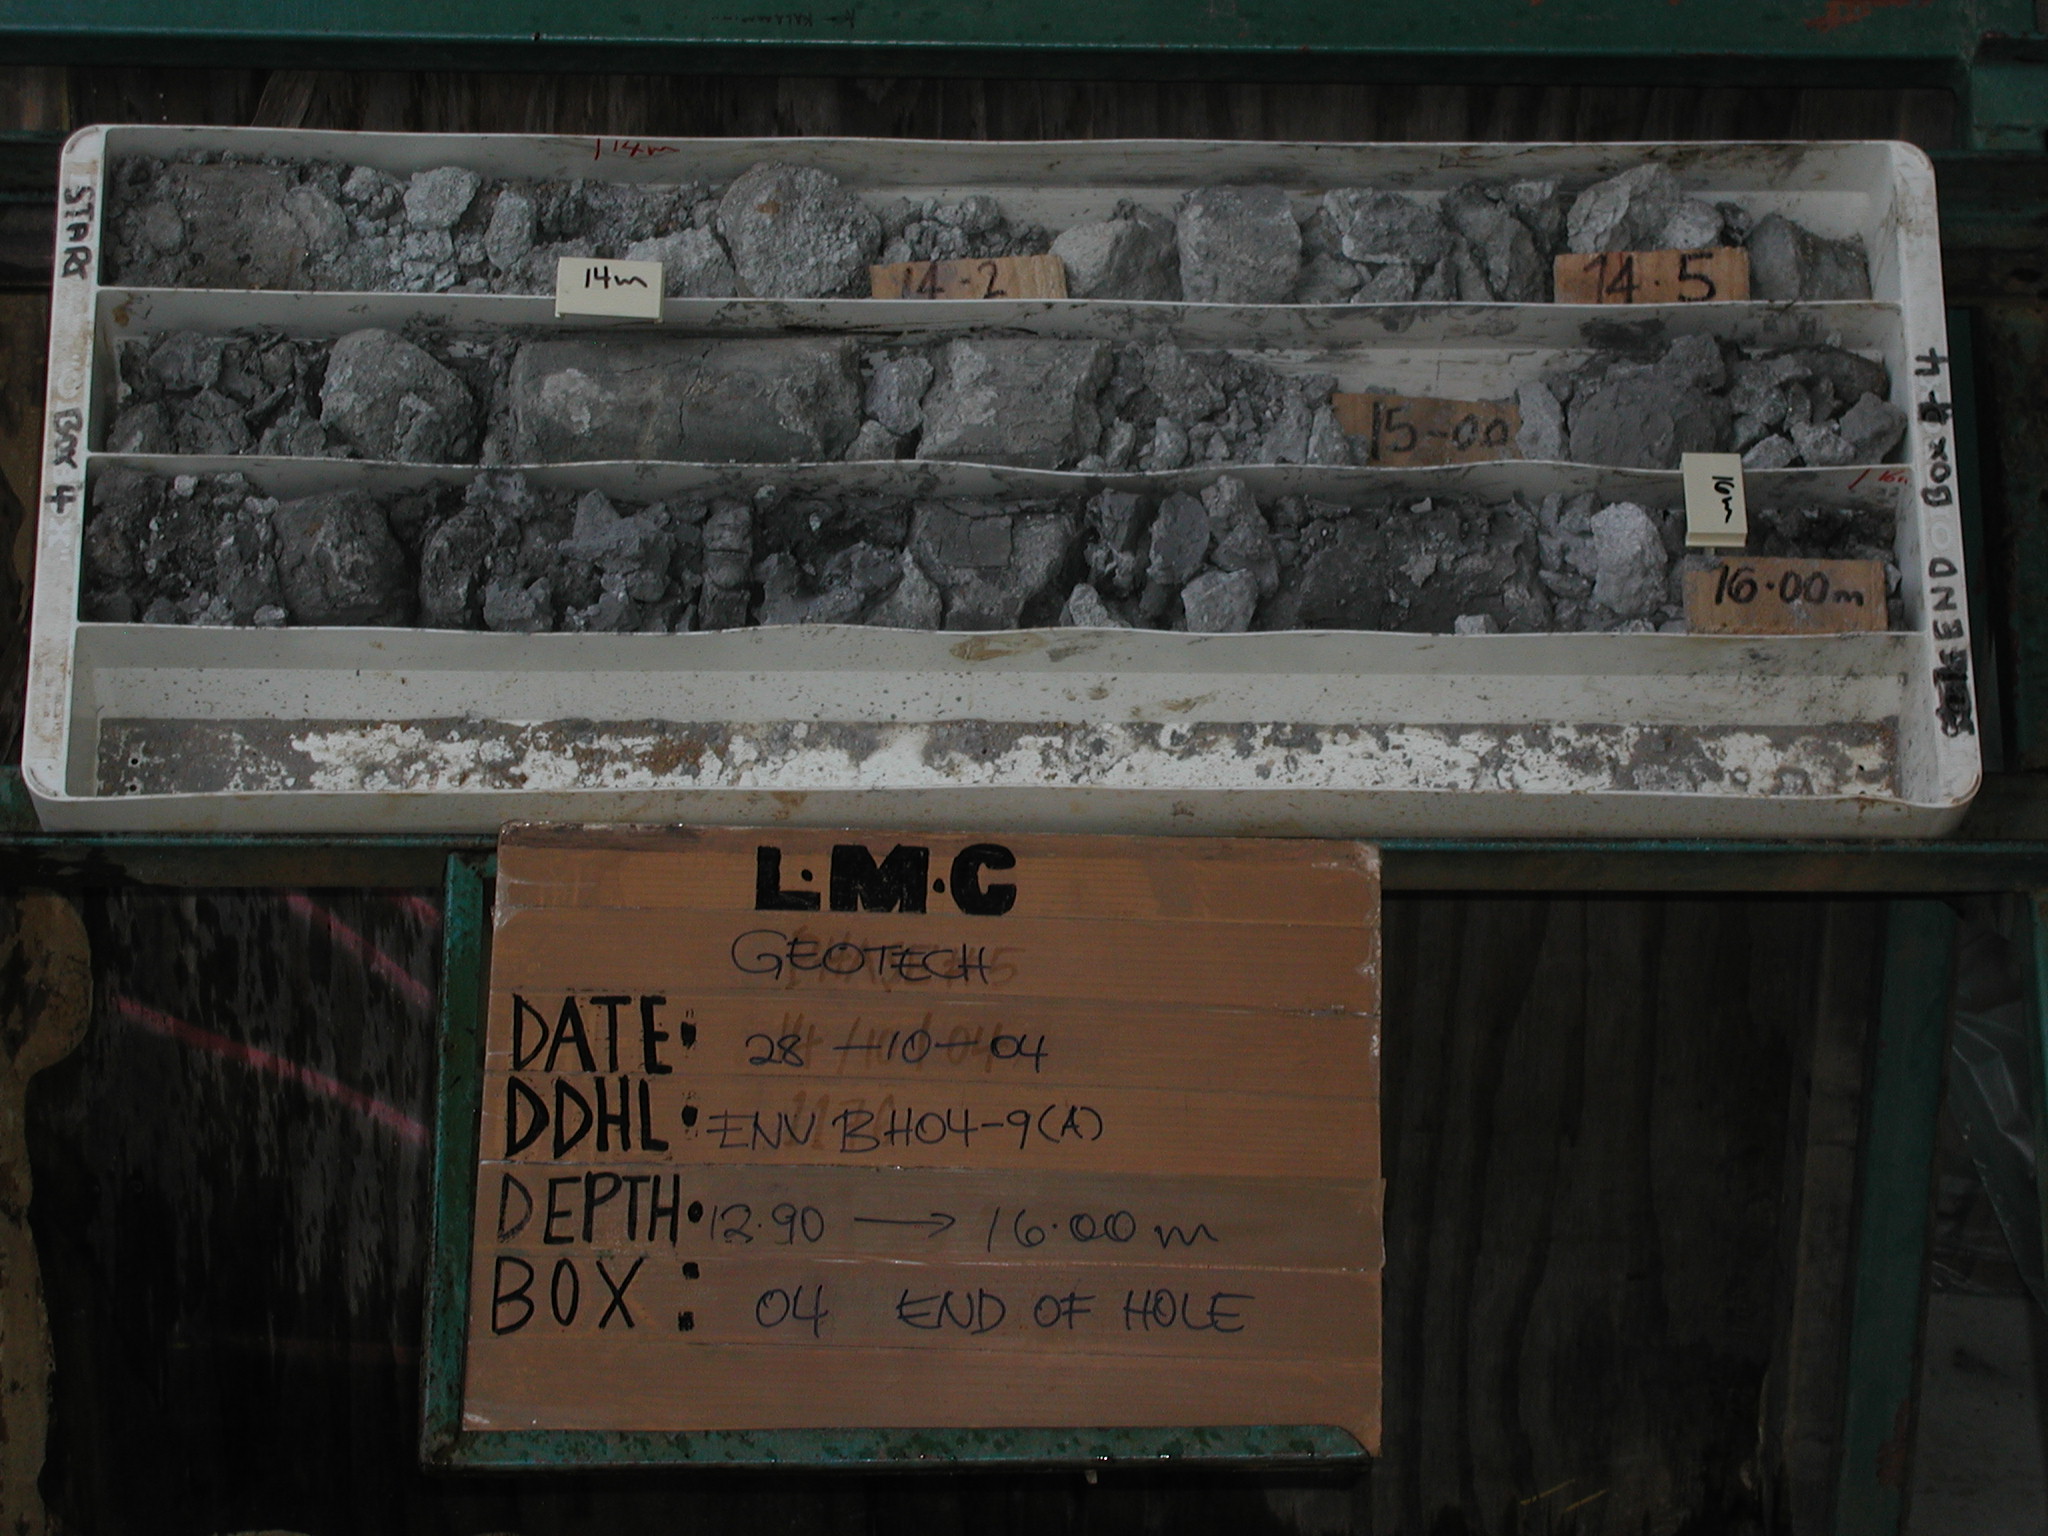 14m
START
BOX 4
14m
14-2
14.5
15-00
16m
16m
16.00m
END BOX 4
L.M.C
GEOTECH
DATE: 28-10-04
DDHL: ENV BH04-9(A)
DEPTH: 12.90 → 16.00 m
BOX : 04 END OF HOLE